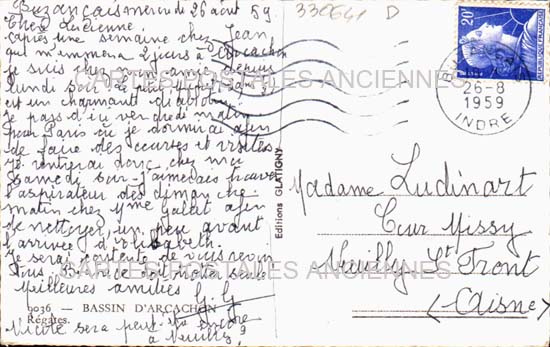 Buzançais mercredi 26 août 59
Chère Lucienne.
après une semaine chez Jean
qui m'emmena 2 jours à Arcachon
je suis chez
lundi soir le petit
est un charmant diablotin
Je pars d'ici vendredi matin
pour Paris où je dormirai afin
de faire des courses et visites
Je rentrerai donc chez moi
samedi soir j'aimerais trouver
l'aspirateur dès dimanche
matin chez Mme Galet afin
de nettoyer un peu avant
l'arrivée d'Elisabeth.
Je serai contente de vous revoir
tous
meilleures amitiés G. G
9036 — BASSIN D'ARCACHON
Régates.
Nicole sera peut-être encore
à Neuilly?
330641 D
Editions GLATIGNY
20F
26-8
1959
INDRE
Madame Ludinart
Cour Missy
Neuilly St Front
(Aisne)
CARTES POSTALES ANCIENNES
CARTES POSTALES ANCIENNES